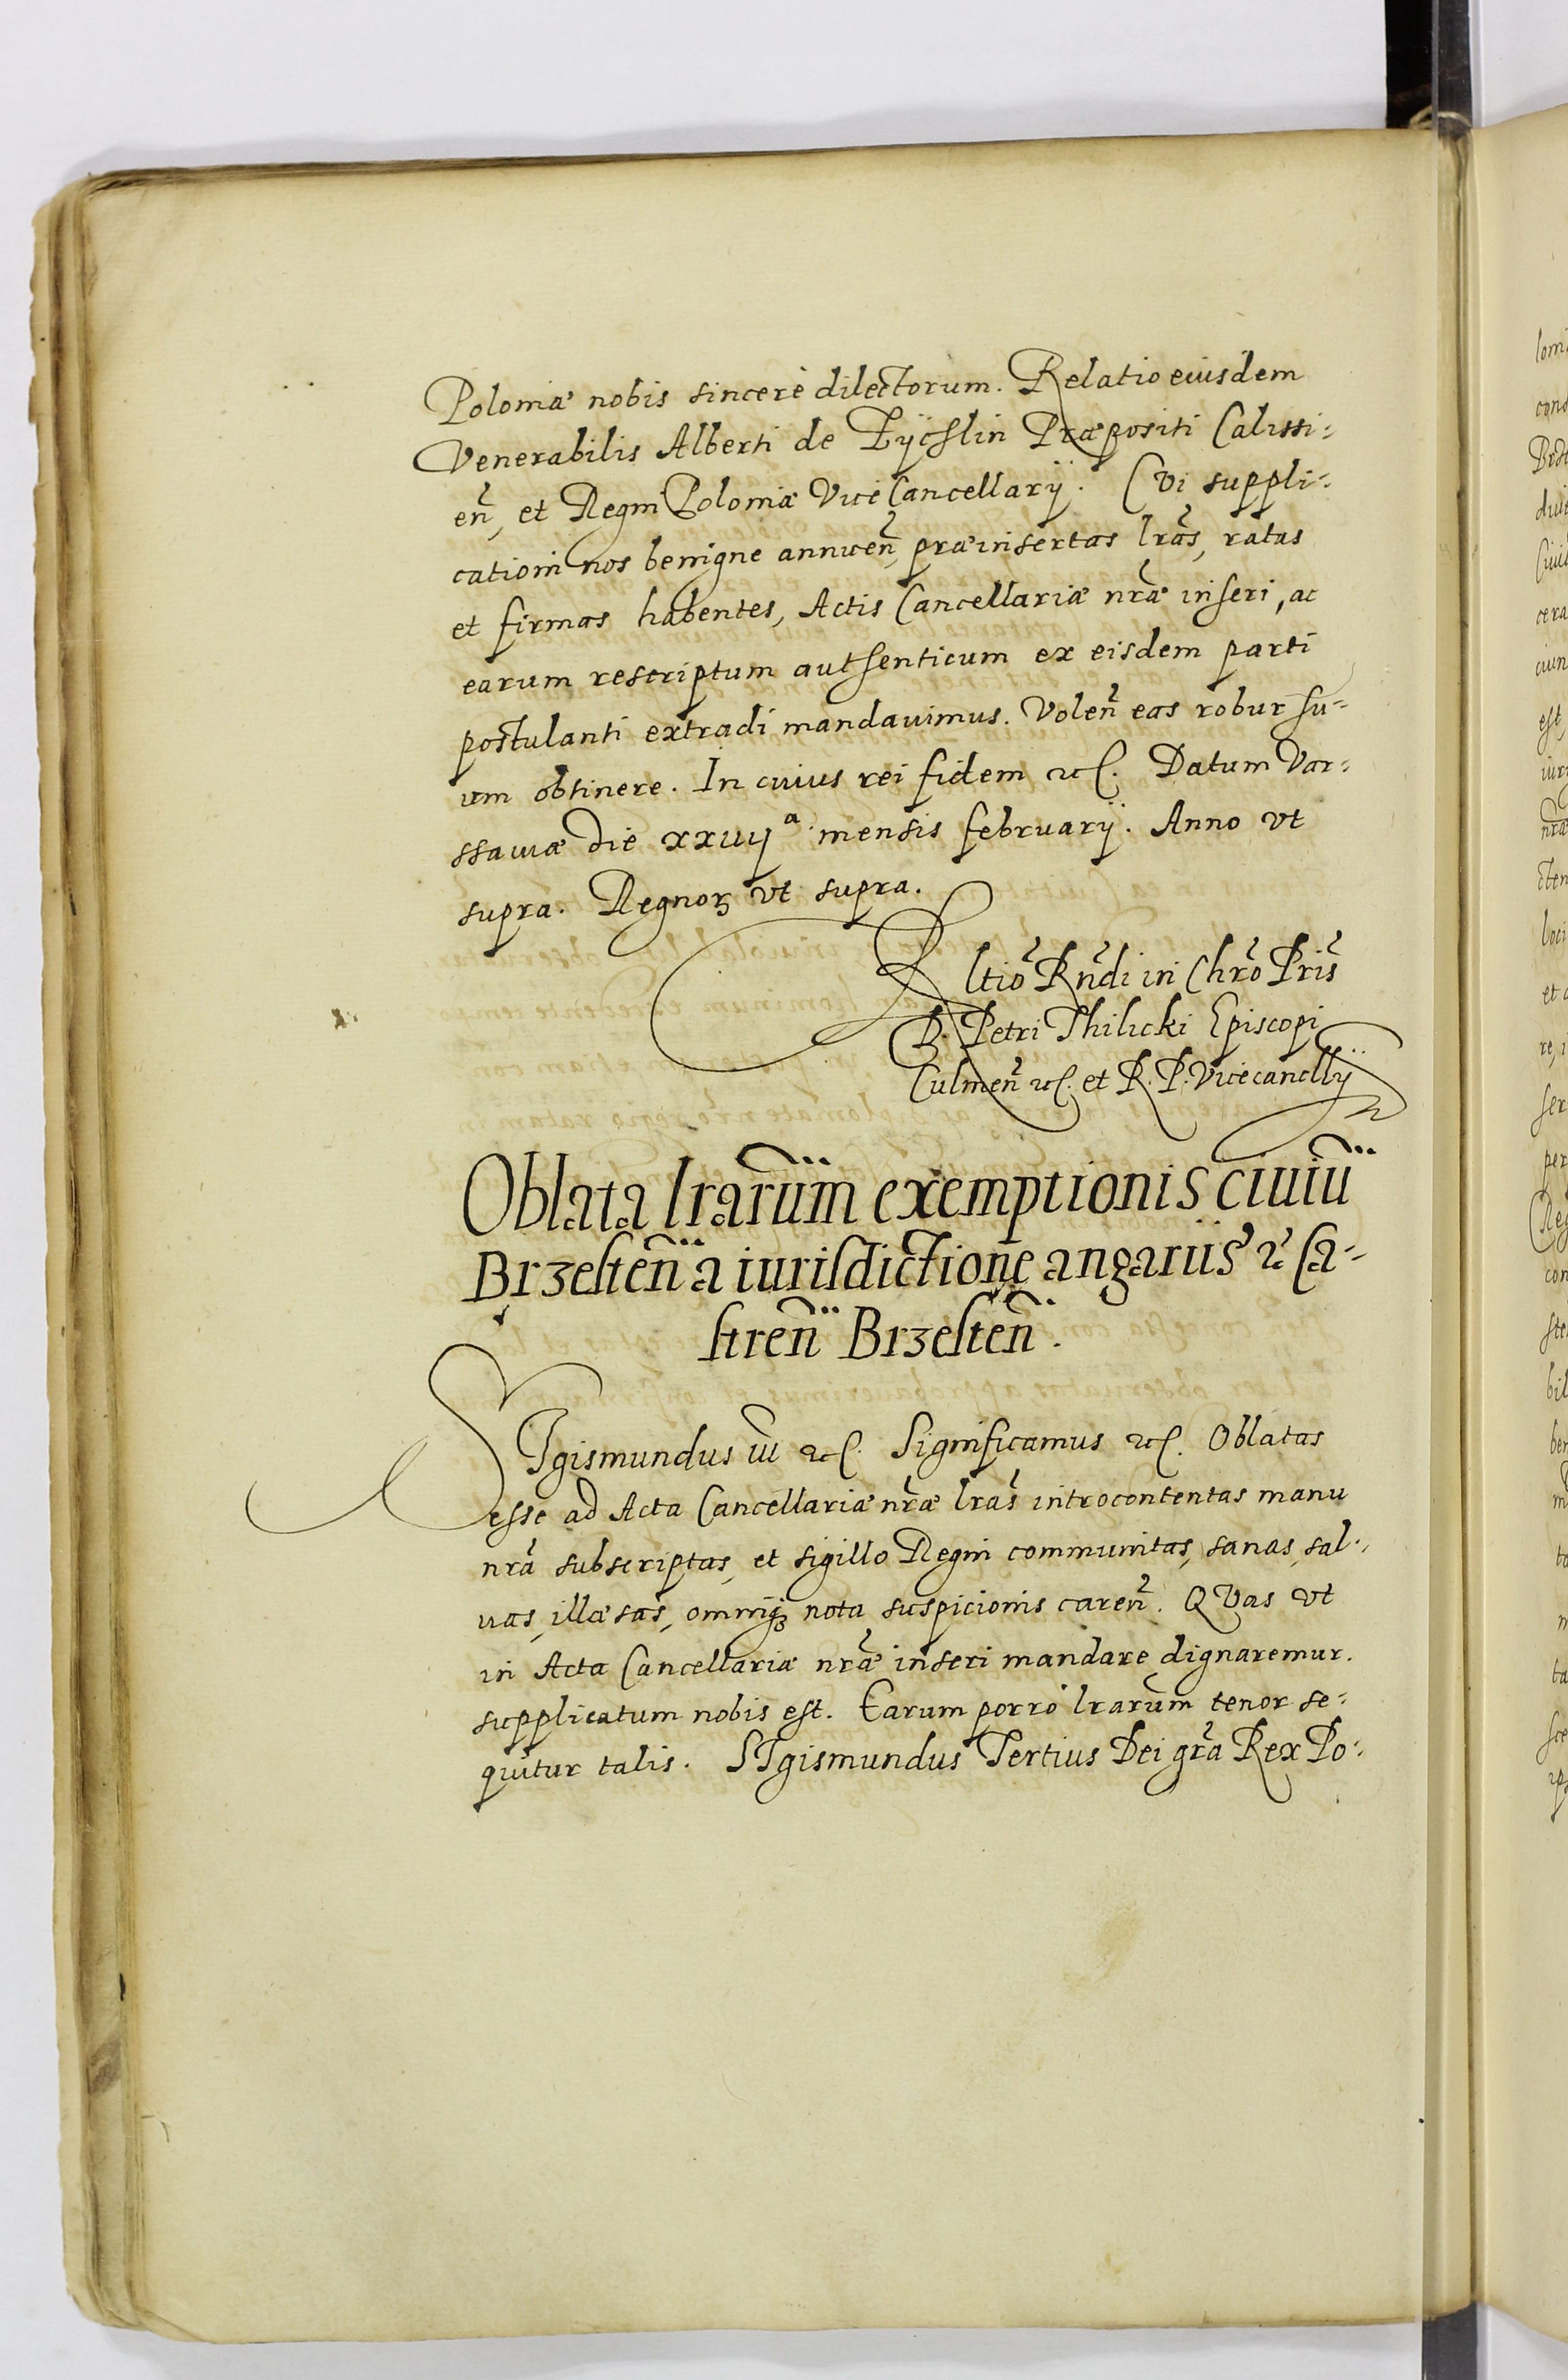 Poloniæ nobis sincerè dilectorum. Relatio eiusdem
Venerabilis Alberti de Zÿchlin Præpositi Calissi=
en̄, et Regni Poloniæ Vice Cancellarÿ. CVi suppli=
cationi nos benigne annuen̄, præinsertas lrãs, ratas
et firmas habentes, Actis Cancellariæ nrãe inseri, ac
earum rescriptum authenticum ex eisdem parti
postulanti extradi mandavimus. Volen̄ eas robur su=
um obtinere. In cuius rei fidem etc. Datum Var=
ssaviæ die xxiiijª mensis februarÿ. Anno vt
supra. Regnorꝫ vt supra.
Rltiõ Rn̄di in Chrõ Pris̄
D. Petri Thilicki Episcopi
Culmen̄ etc. et R. P. Vicecancllÿ
Oblata lrarum̄ exemptionis ciuiū
Brzesten̄ a iurisdictione angariis et Ca=
stren̄ Brzesten̄.
SIgismundus iii etc. Significamus etc. Oblatas
esse ad Acta Cancellariæ nrãe lrãs introcontentas manu
nrã subscriptas, et sigillo Regni communitas, sanas, sal=
uas, illæsas, omniqꝫ nota suspicionis caren̄. QVas vt
in Acta Cancellariæ nrãe inseri mandare dignaremur.
supplicatum nobis est. Earum porrò lrarum̄ tenor se=
quitur talis. SIgismundus Tertius Dei grã Rex Po=